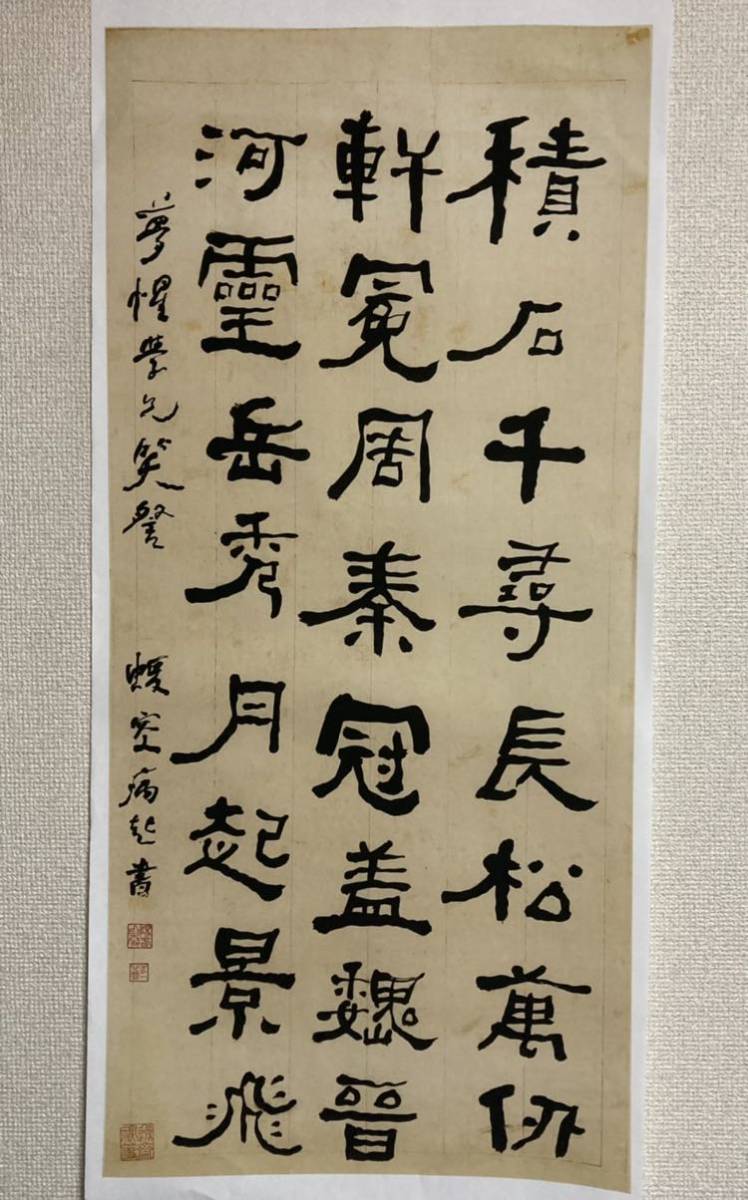 積石千尋長松萬仞
軒冕周秦冠盖魏晉
河靈岳秀月起景飛
夢惺學兄笑詧 蝯叟病起書